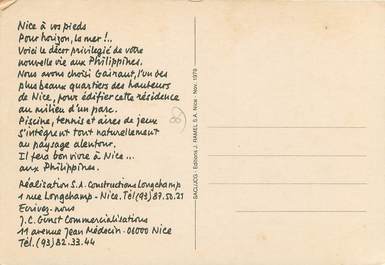 Nice à vos pieds
Pour horizon, la mer!..
Voici le décor privilégié de votre
nouvelle vie aux Philippines.
Nous avons choisi Gairaut, l'un des
plus beaux quartiers des hauteurs
de Nice, pour édifier cette résidence
au milieu d'un parc.
Piscine, tennis et aires de jeux
s'intègrent tout naturellement
au paysage alentour.
Il fera bon vivre à Nice...
aux Philippines.
Réalisation S.A. Constructions Longchamp
1 rue Longchamp - Nice. Tél (93) 87.50.21
Ecrivez-nous
J.C. Gunst Commercialisations
11 avenue Jean Médecin - 06000 Nice
Tel. (93) 82.33.44
SAGLICO - Editions J. RAMEL S.A. Nice - Nov. 1979